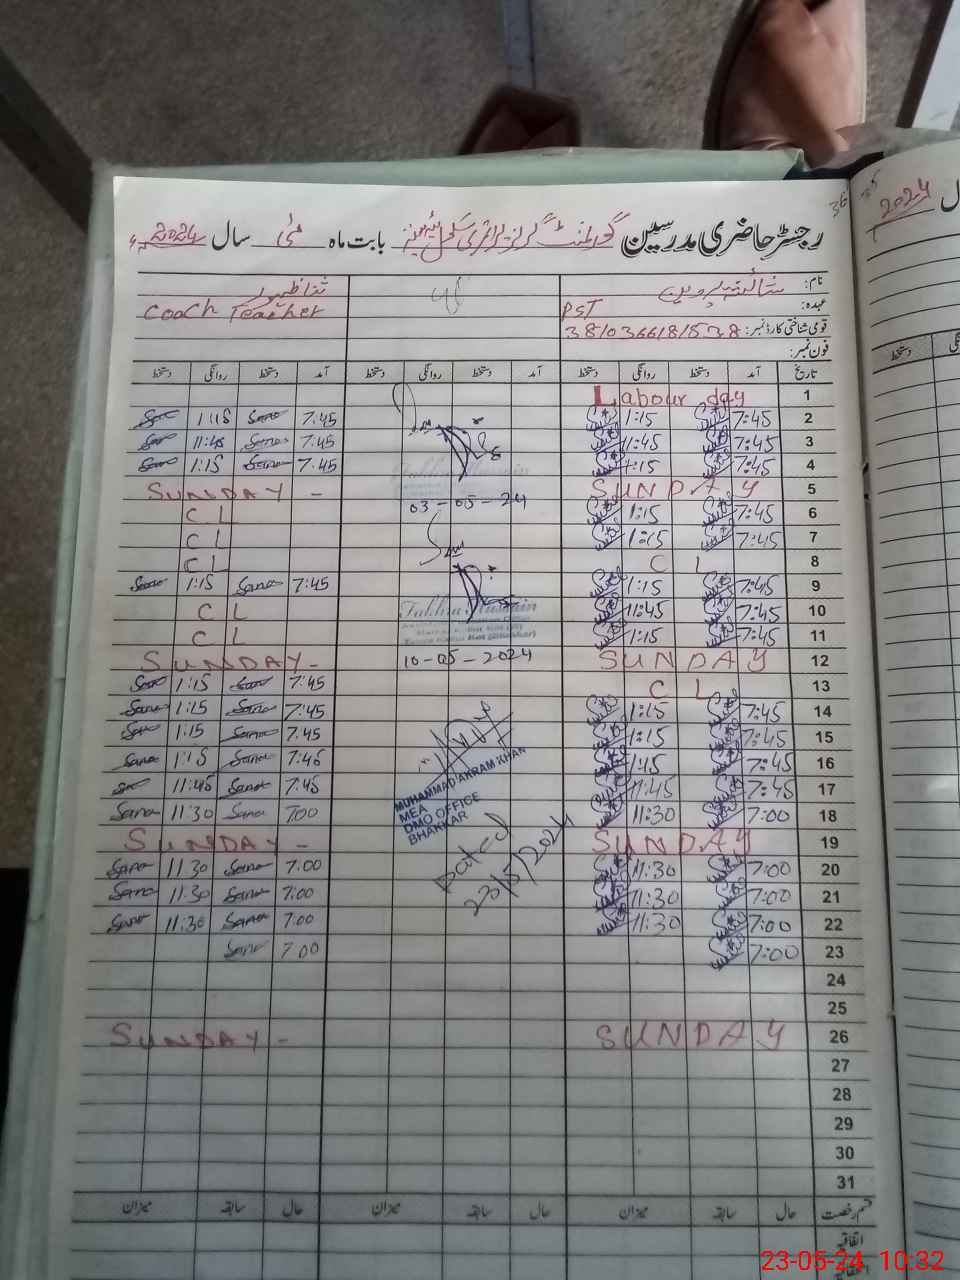 رجسٹر حاضری مدرسین گورنمنٹ گرلز پرائمری سکول بابت ماہ مئی سال 2024ء
36 35 2024
نام: شائستہ پروین ثنا ظہور
عہدہ: PST Coach Teacher
قومی شناختی کارڈ نمبر: 3810366181538
فون نمبر:
تاریخ آمد دستخط روانگی دستخط آمد دستخط روانگی دستخط آمد دستخط روانگی دستخط
1 Labour day
2 7:45 1:15 7.45 Sana 1:15 Sana
3 7:45 11:45 7.45 Sana 11:45 Sana
4 7:45 1:15 7.45 Sana 1:15 Sana
Fakhra Hussain
5 SUNDAY SUNDAY -
03-05-24
6 7:45 1:15 CL
7 7:45 1:15 CL
8 CL CL
9 7:45 1:15 7:45 Sana 1:15 Sana
10 7:45 11:45 CL
Fakhra Hussain
11 7:45 1:15 CL
12 SUNDAY SUNDAY -
10-05-2024
13 CL 7:45 Sana 1:15 Sana
14 7:45 1:15 7:45 Sana 1:15 Sana
15 7:45 1:15 7.45 Sana 1:15 Sana
16 7:45 1:15 7.45 Sana 1:15 Sana
17 7:45 11:45 7.45 Sana 11:45 Sana
18 7:00 11:30 7.00 Sana 11:30 Sana
MUHAMMAD AKRAM KHAN
MEA
DMO OFFICE
BHAKKAR
19 SUNDAY SUNDAY -
Dated
23/5/2024
20 7:00 11:30 7.00 Sana 11:30 Sana
21 7:00 11:30 7:00 Sana 11:30 Sana
22 7:00 11:30 7:00 Sana 11:30 Sana
23 7:00 7.00 Sana
24
25
26 SUNDAY SUNDAY -
27
28
29
30
31
قسم رخصت حال سابقہ میزان حال سابقہ میزان حال سابقہ میزان
اتفاقیہ
23-05-24 10:32